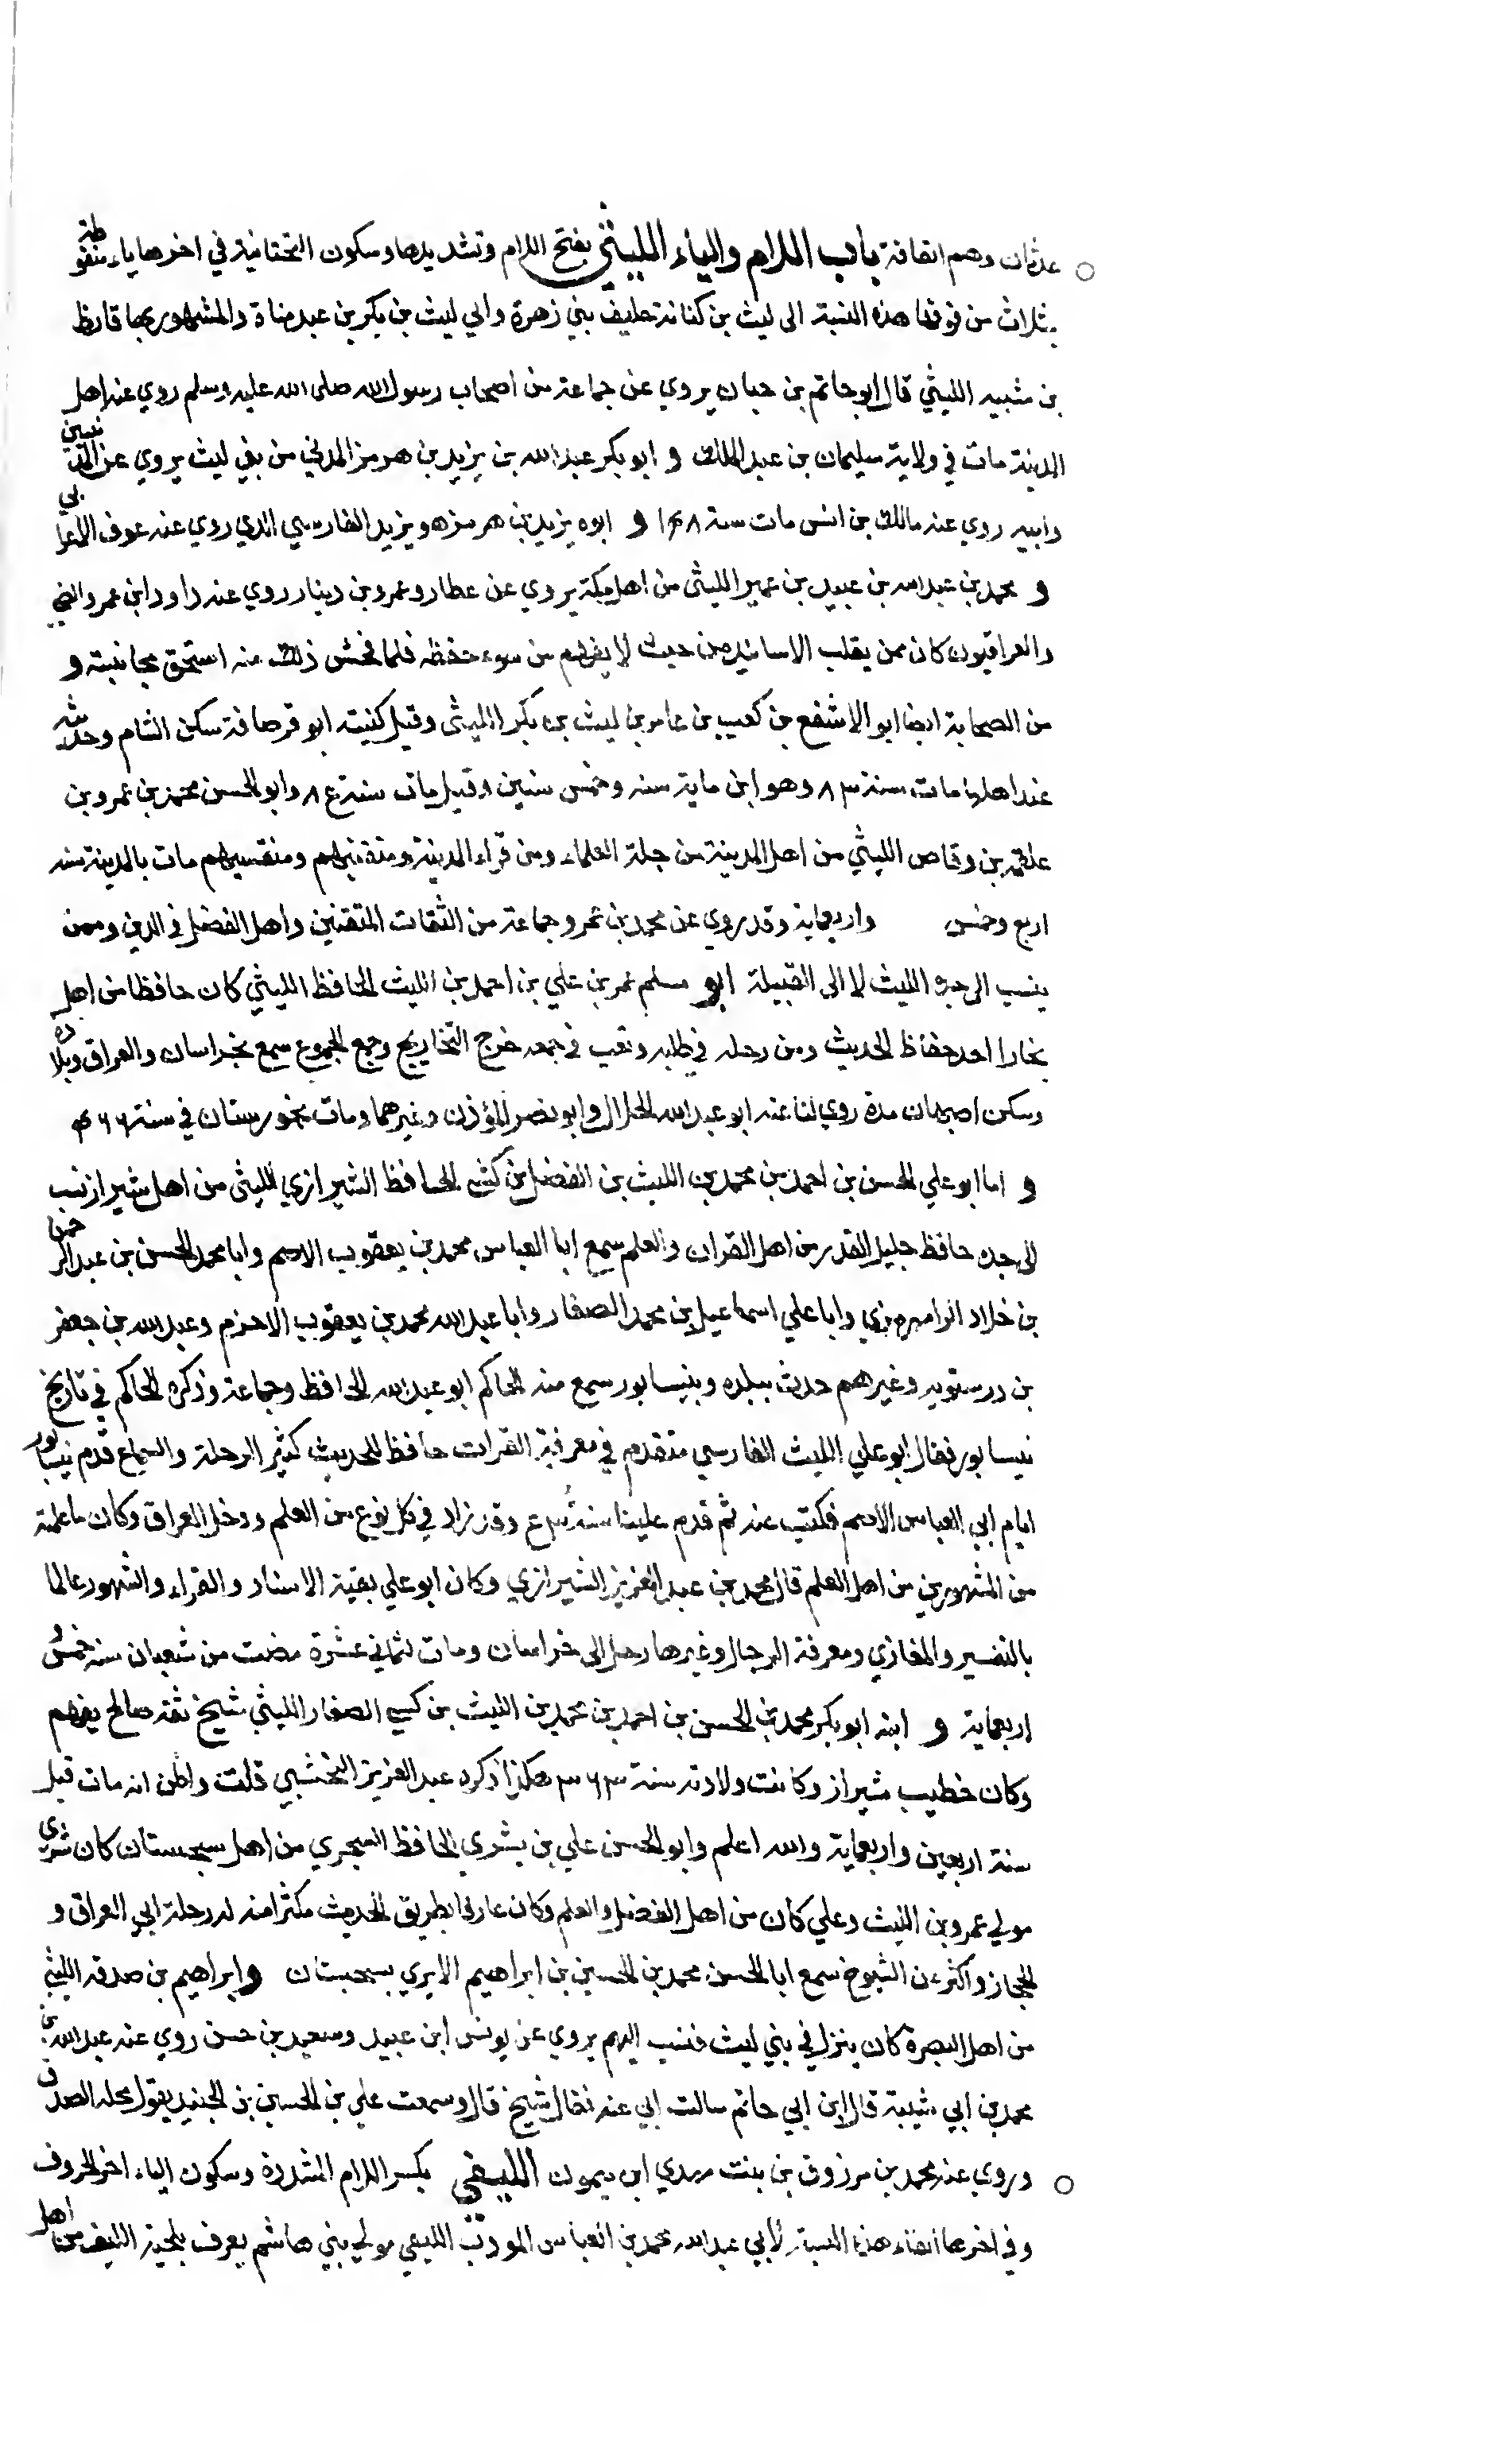 عدثان وهم اتقافة باب اللام والياء الليثي بفتح اللام وتشديدها وسكون التحتانية في اخرها ياء منقوطة
بثلاث من فوقها هذه النسبة الى ليث بن كنانة حليف بني زهرة والي ليث بن بكر بن عبد مناة والمشهور بها قارظ
بن شبيه الليثي قال ابو حاتم بن حبان يروي عن جماعة من اصحاب رسول الله صلى الله عليه وسلم روي عنه اهل
المدينة مات في ولاية سليمان بن عبد الملك و ابو بكر عبد الله بن يزيد بن هرمز المدني من بني ليث يروي عن
وابيه روي عنه مالك بن انس مات سنة ١٤٨ و ابوه يزيد بن هرمز هو يزيد الفارسي الذي روي عنه عوف الاعرابي
و محمد بن عبد الله بن عبيد بن عمير الليثي من اهل مكة يروي عن عطا وعمرو بن دينار روي عنه داود ابن عمرو الضبي
والعراقيون كان ممن يقلب الاسانيد من حيث لا يفهم من سوء حفظه فلما فحش ذلك منه استحق مجانبته و
من الصحابة ايضا ابو الاشفع بن كعب بن عامر بن ليث بن بكر الليثي وقيل كنيته ابو قرصافة سكن الشام وحديثه
عند اهلها مات سنة ٨٣ وهو ابن ماية سنه وخمس سنين وقيل مات سنة ٨٤ وابو الحسن محمد بن عمرو بن
علقمة بن وقاص الليثي من اهل المدينة من جلة العلماء ومن قراء المدينة ومتقنيهم ومنقسيهم مات بالمدينة سنه
اربع وخمس واربعماية وقد روي عن محمد بن عمرو جماعة من الثقات المتقنين واهل الفضل في الدين وممن
ينسب الى جده الليث لا الى القبيلة ابو مسلم عمر بن علي بن احمد بن الليث الحافظ الليثي كان حافظا من اهل
بخارا احد حفاظ الحديث ومن رحل في طلبه وتعب في جمعه خرج التخاريج وجمع الجموع سمع بخراسان والعراق وبلاده
وسكن اصبهان مدة روي لنا عنه ابو عبد الله الخلال وابو نصر المؤذن وغيرهما ومات بخورستان في سنة ٤٦٦
و اما ابو علي الحسن بن احمد بن محمد بن الليث بن الفضل بن كشي الحافظ الشيرازي الليثي من اهل شيراز نسب
الى جده حافظ جليل القدر من اهل القران والعلم سمع ابا العباس محمد بن يعقوب الاصم وابا محمد الحسن بن عبد الرحمن
بن خلاد الرامهرمزي وابا علي اسماعيل بن محمد الصفار وابا عبد الله محمد بن يعقوب الاخرم وعبد الله بن جعفر
بن درستويه وغيرهم حدث ببلده وبنيسابور سمع منه الحاكم ابو عبد الله الحافظ وجماعة وذكره الحاكم في تاريخ
نيسابور فقال ابو علي الليث الفارسي متقدم في معرفة القرات حافظ للحديث كثير الرحلة والسماع قدم نيسابور
ايام ابي العباس الاصم فكتب عنه ثم قدم علينا سنة وقد زاد في كل نوع من العلم ودخل العراق وكان ما علمته
من المشهورين من اهل العلم قال محمد بن عبد العزيز الشيرازي وكان ابو علي بقية الاسناد والقراء والشهور عالما
بالتفسير والمغازي ومعرفة الرجال وغيرها رحل الى خراسان ومات لثماني عشرة مضت من شعبان سنه خمس و
اربعماية و ابنه ابو بكر محمد بن الحسن بن احمد بن محمد بن الليث بن كسي الصفار الليثي شيخ ثقة صالح يفهم
وكان خطيب شيراز وكانت ولادته سنة ٣٦٣ هكذا ذكره عبد العزيز النخشبي قلت واظن انه مات قبل
سنة اربعين واربعماية والله اعلم وابو الحسن علي بن بشري الحافظ السجزي من اهل سجستان كان بشري
مولي عمرو بن الليث وعلي كان من اهل الفضل والعلم وكان عارفا بطريق الحديث مكثرا منه له رحلة الى العراق و
الحجاز واكثر عن الشيوخ سمع ابا الحسن محمد بن الحسين بن ابراهيم الابري بسجستان وابراهيم بن صدقه الليثي
من اهل البصرة كان ينزل في بني ليث فنسب اليهم يروي عن يونس ابن عبيد وسعيد بن حسن روي عنه عبد الله بن
محمد بن ابي شيبة قال ابن ابي حاتم سالت ابي عنه فقال شيخ قال وسمعت علي بن الحسين بن الجنيد يقول محله الصدق
وروي عنه محمد بن مرزوق بن بنت مهدي ابن ميمون الليفي بكسر اللام المشددة وسكون الياء اخر الحروف
وفي اخرها الفاء هذه النسبة لابي عبد الله محمد بن العباس المودب الليفي مولي بني هاشم يعرف بلحية الليف من اهل